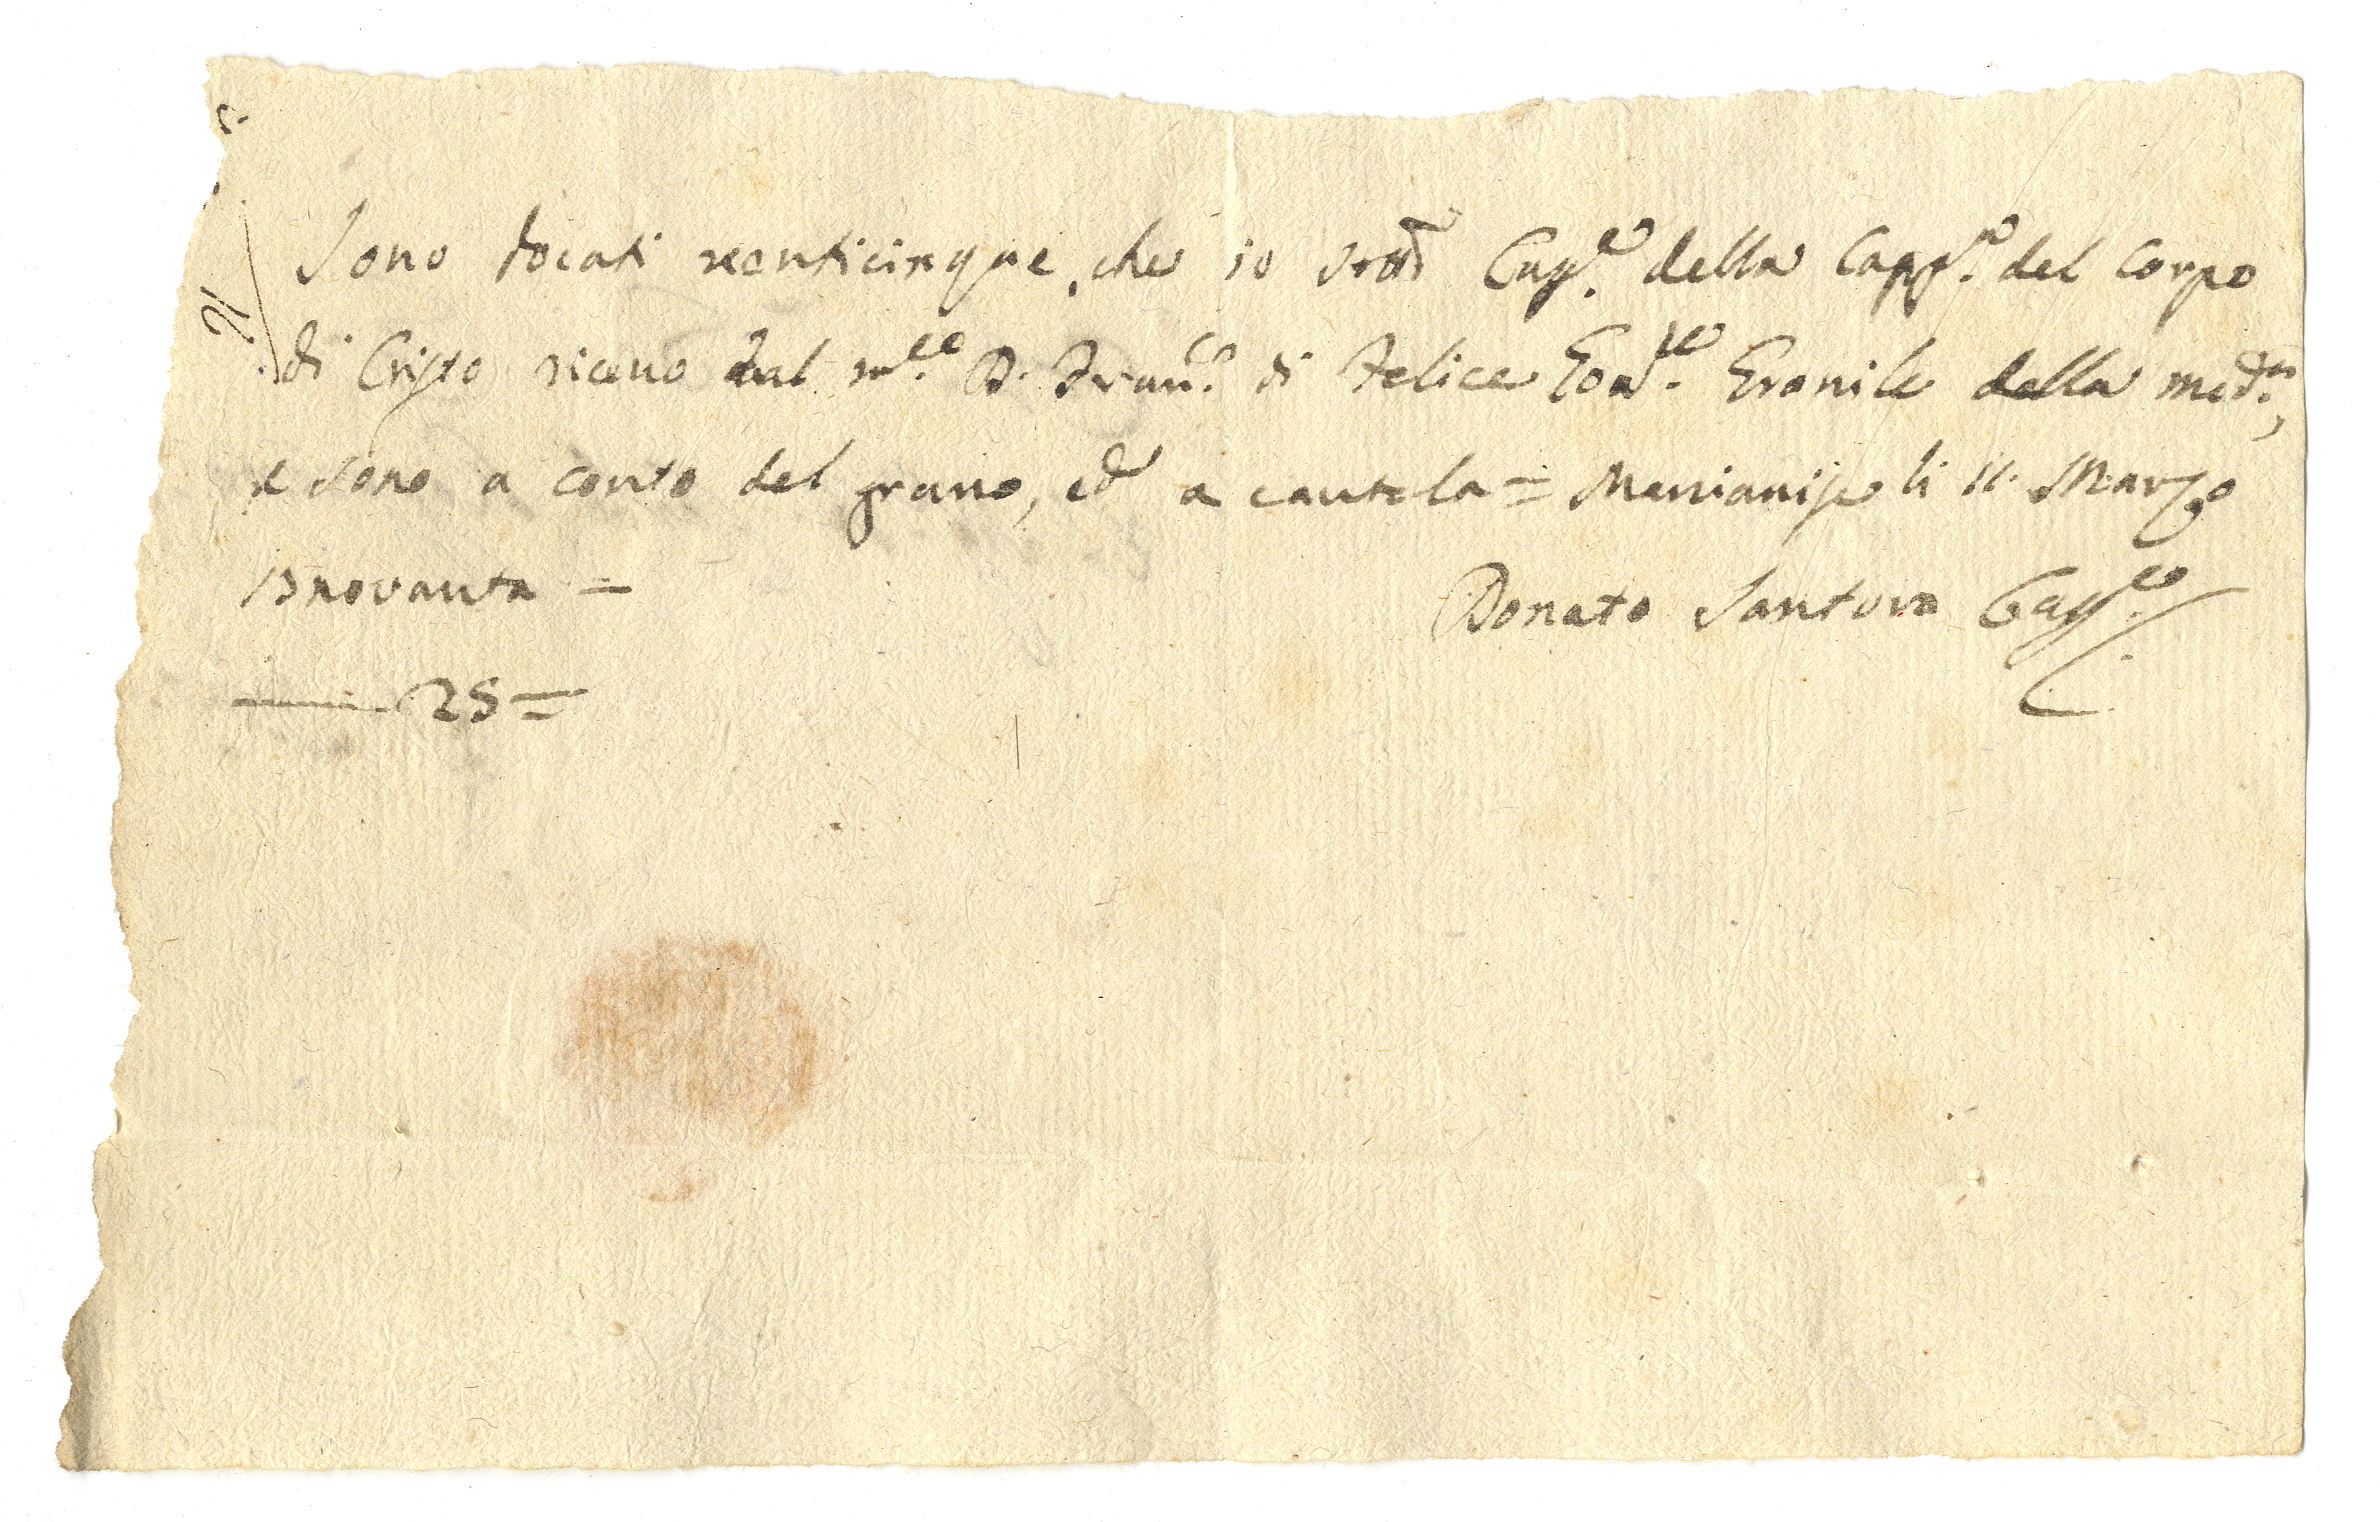 Sono docati venticinque, che io sott.o Cass.e della Capp.a del Corpo
di Cristo ricevo dal m.co D. Fran.co di Felice Eco.le della med.a,
e sono a conto del grano, ed a cautela = Marcianise li 11. Marzo
novanta =
Donato Santoro Cass.e
25 =